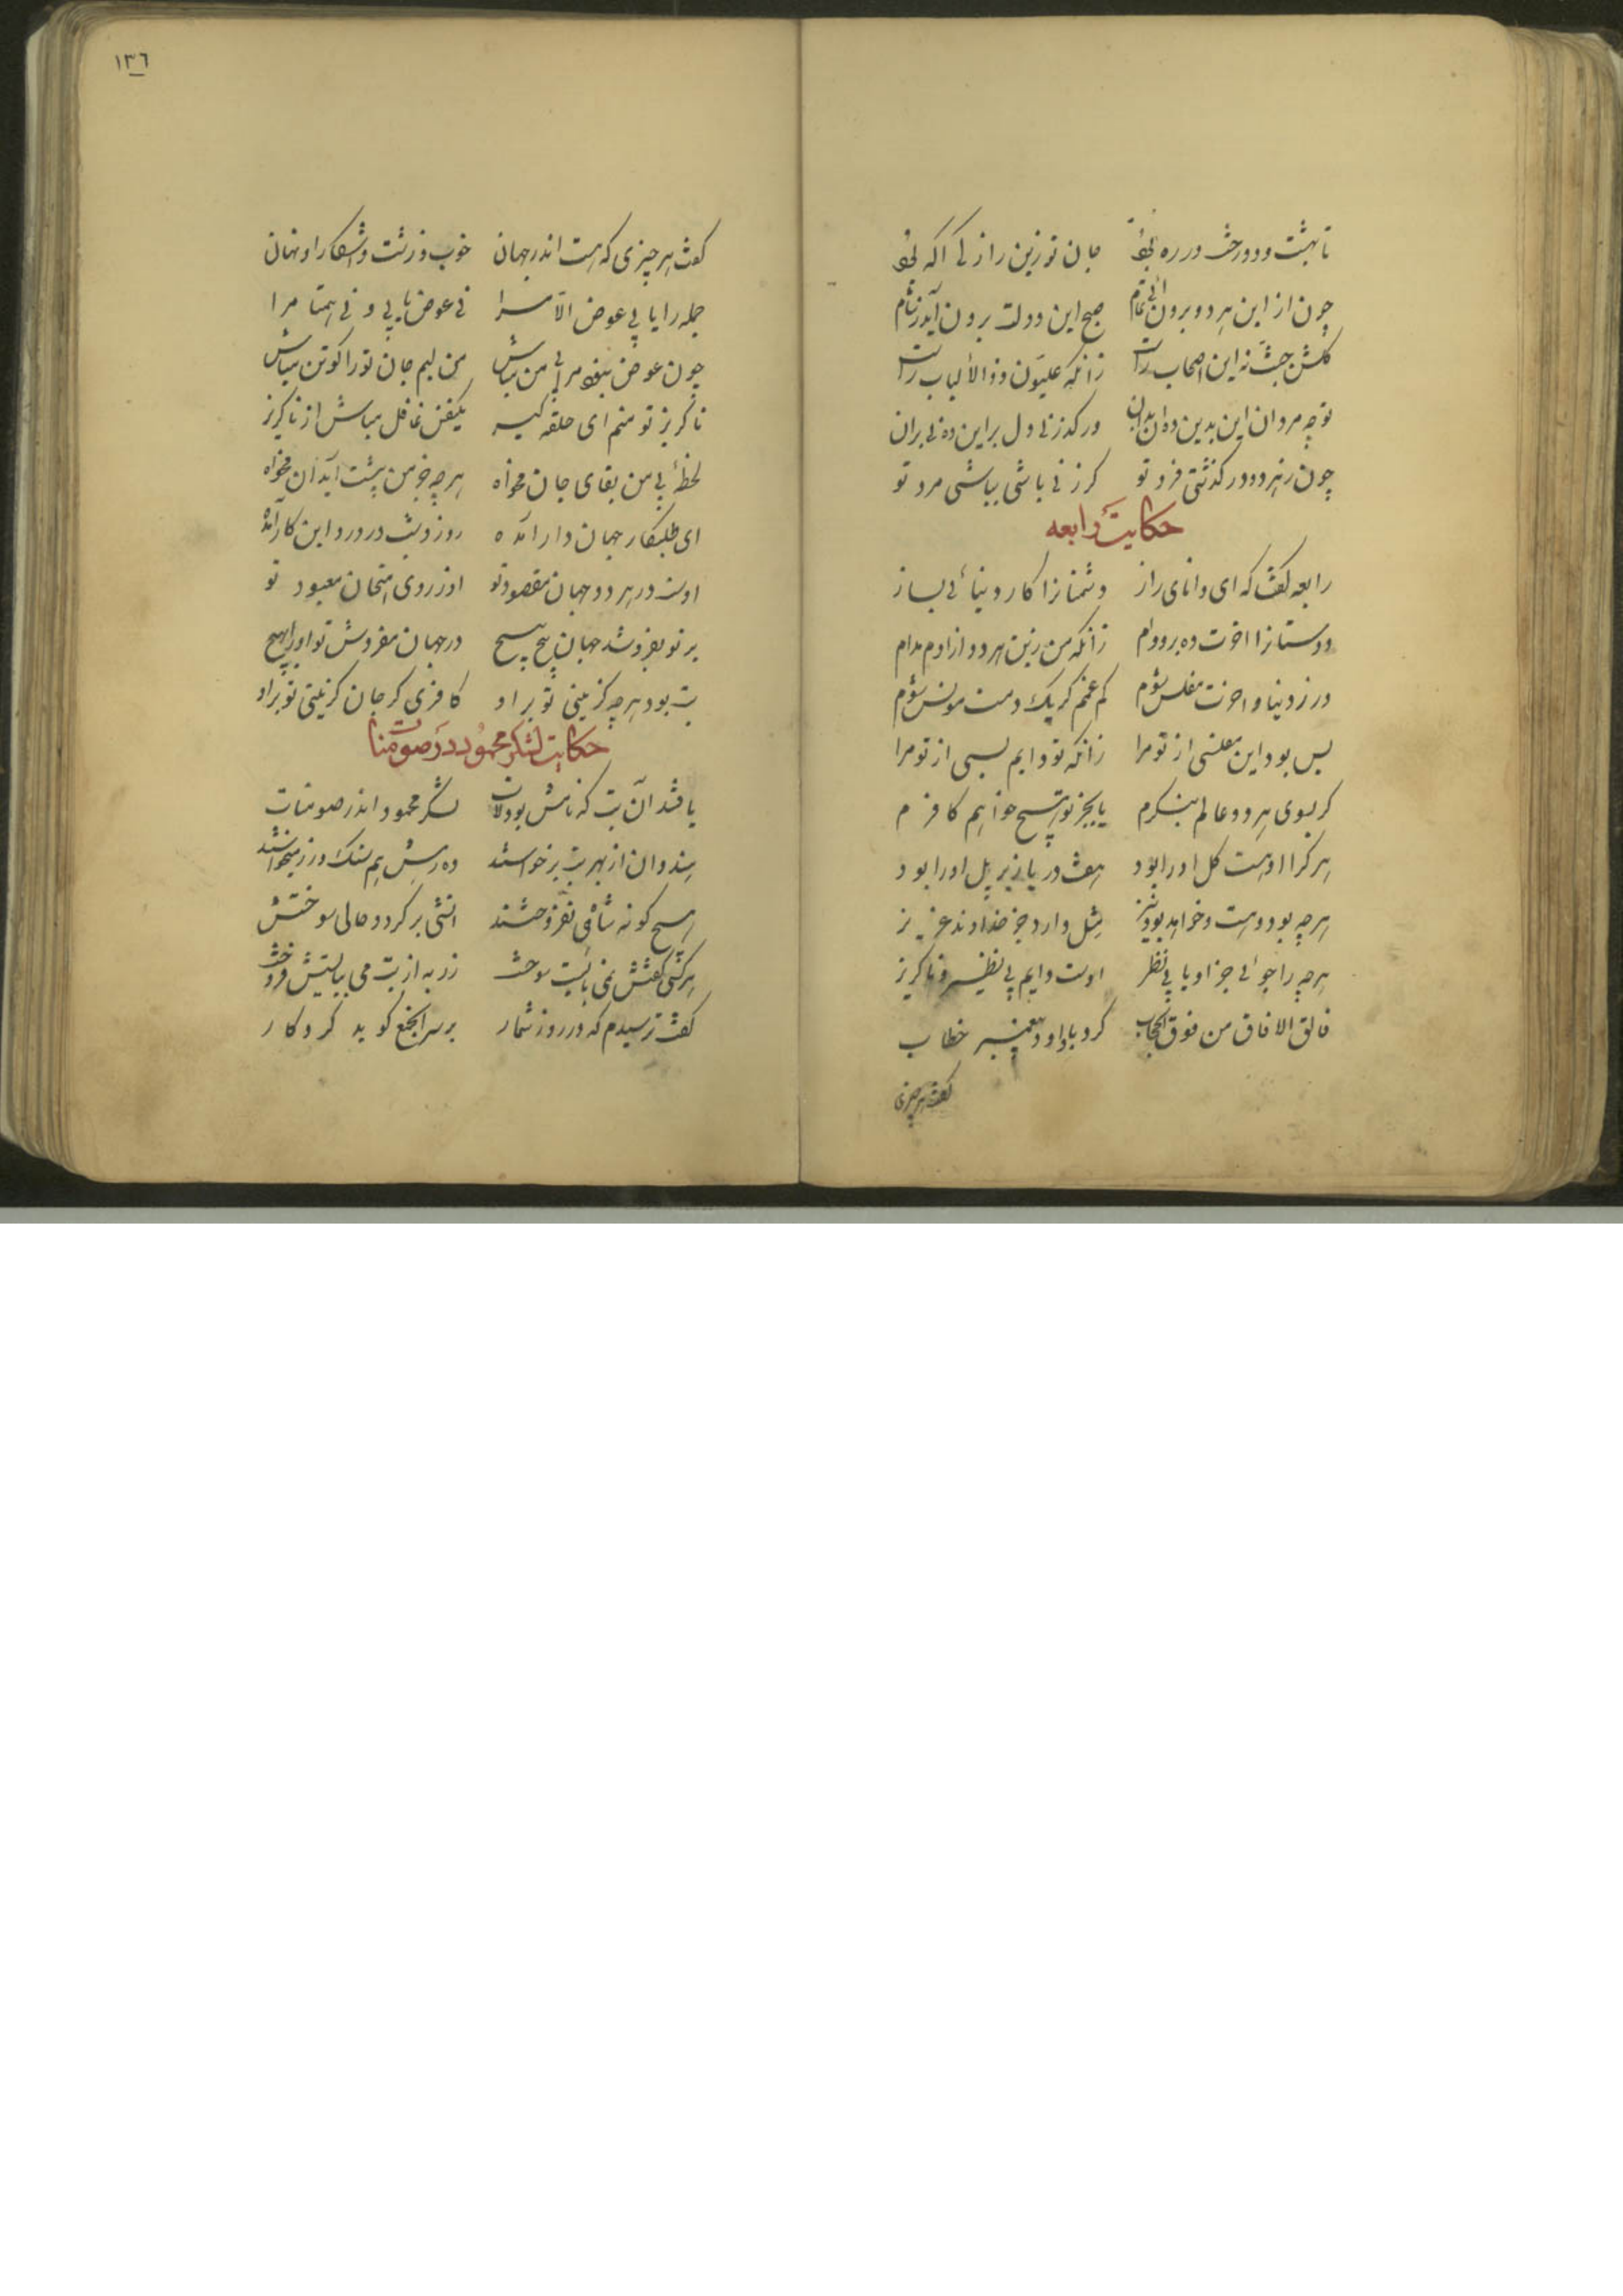 تا بهشت و دوزخت در ره بود جان تو زین راز کی آگه بود
چون ازین هر دو برون آئی تمام صبح این دولت برون آید ز شام
گلشن جنت نه این اصحاب راست زانکه علیون ذوالالباب راست
تو چو مردان این بدین ده آن بدان درگذر نی دل براین ده نی بران
چون ز هر دو درگذشتی فرد تو گر زنی باشی بباشی مرد تو
حکایت رابعه
رابعه گفت که ای دانای راز دشمنانرا کار دنیائی بساز
دوستانرا آخرت ده بر دوام زانکه من زین هر دو آزادم مدام
ور ز دنیا و آخرت مفلس شوم کم غمم گر یک دمت مونس شوم
بس بود این مفلسی از تو مرا زانکه تو دایم بسی از تو مرا
گر بسوی هر دو عالم بنگرم یا بجز تو هیچ خواهم کافرم
هر کرا او هست کل او را بود هفت دریا زیر پل او را بود
هر چه بود و هست و خواهد بود نیز مثل دارد جز خداوند عزیز
هر چه را جوئی جز او یابی نظر اوست دایم بی نظیر و ناگزیر
خالق الافاق من فوق الحجاب کرد با داود پیغمبر خطاب
گفت هر چیزی
١٣٦
گفت هر چیزی که هست اندر جهان خوب و زشت و آشکارا و نهان
جمله را یابی عوض الا مرا نی عوض یابی و نی همتا مرا
چون عوض نبود مرا بی من مباش من بسم جان تو را گو تن مباش
ناگزیر تو منم ای حلقه گیر یکنفس غافل مباش از ناگزیر
لحظهٔ بی من بقای جان مخواه هر چه جز من پیشت آید آن مخواه
ای طلبکار جهان دار آمده روز و شب در درد این کار آمده
اوست در هر دو جهان مقصود تو او ز روی امتحان معبود تو
بر تو بفروشد جهان پیچ پیچ در جهان مفروش تو او را بهیچ
بت بود هر چه گزینی تو بر او کافری گر جان گزینی تو بر او
حکایت لشکر محمود در صومنات
یافتند آن بت که نامش بود لات لشکر محمود اندر صومنات
هندوان از بهر بت برخواستند ده رهش هم سنگ زر میخواستند
هیچ گونه شاه می نفروختند آتشی بر کرد و حالی سوختش
هر کسی گفتش نمی بایست سوخت زر به از بت می ببایستش فروخت
گفت ترسیدم که در روز شمار بر سر آنجمع گوید کردگار